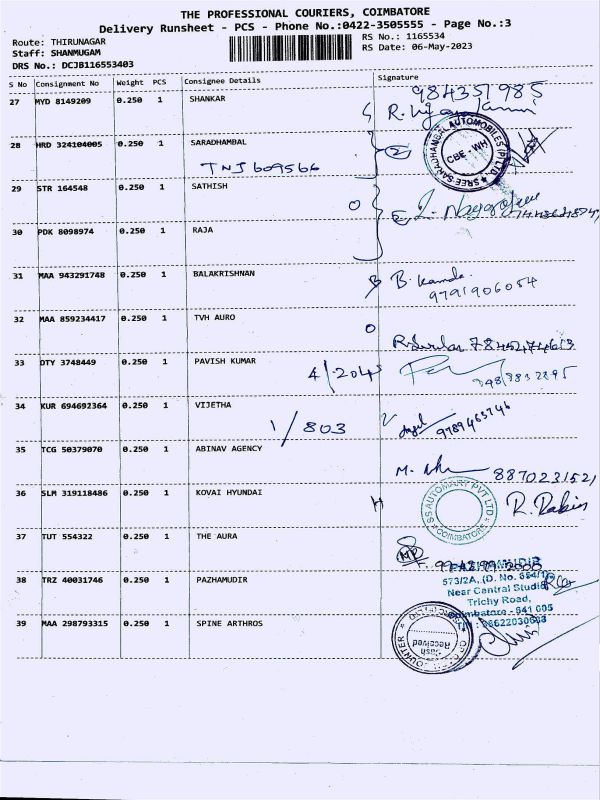 THE PROFESSIONAL COURIERS, COIMBATORE
Delivery Runsheet - PCS - Phone No.:0422-3505555 - Page No.:3
Route: THIRUNAGAR
RS No.: 1165534
Staff: SHANMUGAM
RS Date: 06-May-2023
DRS No.: DCJB116553403
S No Consignment No Weight PCS Consignee Details Signature
27 MYD 8149209 0.250 1 SHANKAR
9843571985
28 HRD 324104005 0.250 1 SARADHAMBAL
TNJ 609566
SREE SARADHAMBAL AUTOMOBILES (P) LTD.
CBE - WH
29 STR 164548 0.250 1 SATHISH
30 PDK 8098974 0.250 1 RAJA
31 MAA 943291748 0.250 1 BALAKRISHNAN
9791906054
32 MAA 859234417 0.250 1 TVH AURO
33 DTY 3748449 0.250 1 PAVISH KUMAR
4/204
34 KUR 694692364 0.250 1 VIJETHA
1/803
9789463746
35 TCG 50379070 0.250 1 ABINAV AGENCY
8870231521
36 SLM 319118486 0.250 1 KOVAI HYUNDAI
SS AUTOMART PVT LTD
COIMBATORE
37 TUT 554322 0.250 1 THE AURA
38 TRZ 40031746 0.250 1 PAZHAMUDIR
573/2A, (D. No. 654/1)
Near Central Studio
Trichy Road,
Coimbatore - 641 005
39 MAA 298793315 0.250 1 SPINE ARTHROS
Cash
Received